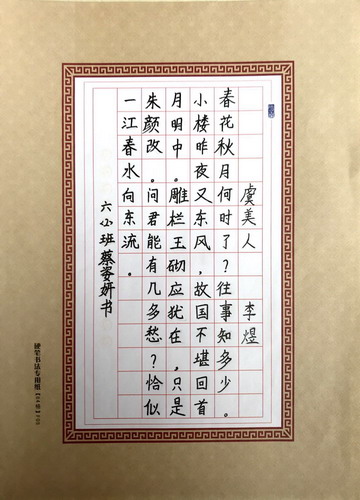 虞美人 李煜
春花秋月何时了？往事知多少。
小楼昨夜又东风，故国不堪回首
月明中。雕栏玉砌应犹在，只是
朱颜改。问君能有几多愁？恰似
一江春水向东流。
六（2）班蔡姿妍书
硬笔书法专用纸